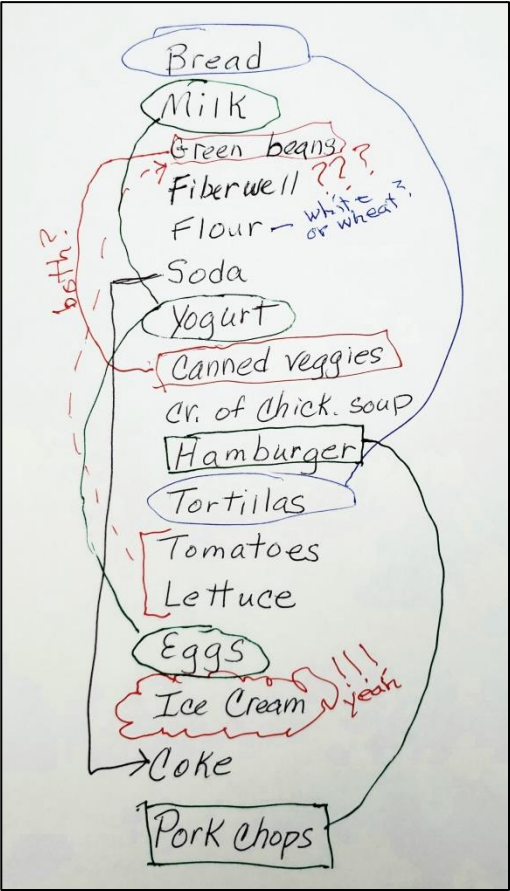 Bread
Milk
Green beans
Fiberwell ???
Flour - white
or wheat?
both?
Soda
Yogurt
Canned veggies
Cr. of Chick. soup
Hamburger
Tortillas
Tomatoes
Lettuce
Eggs
Ice Cream !!!
yeah
Coke
Pork Chops